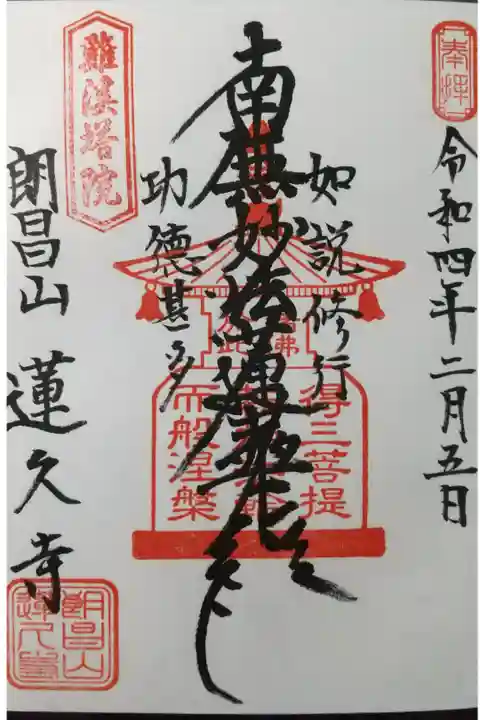 奉拝
令和四年二月五日
如説修行
南無妙法蓮華経
功徳甚多
得三菩提
而般涅槃
難渓塔院
朗昌山 蓮久寺
朗昌山
蓮久寺